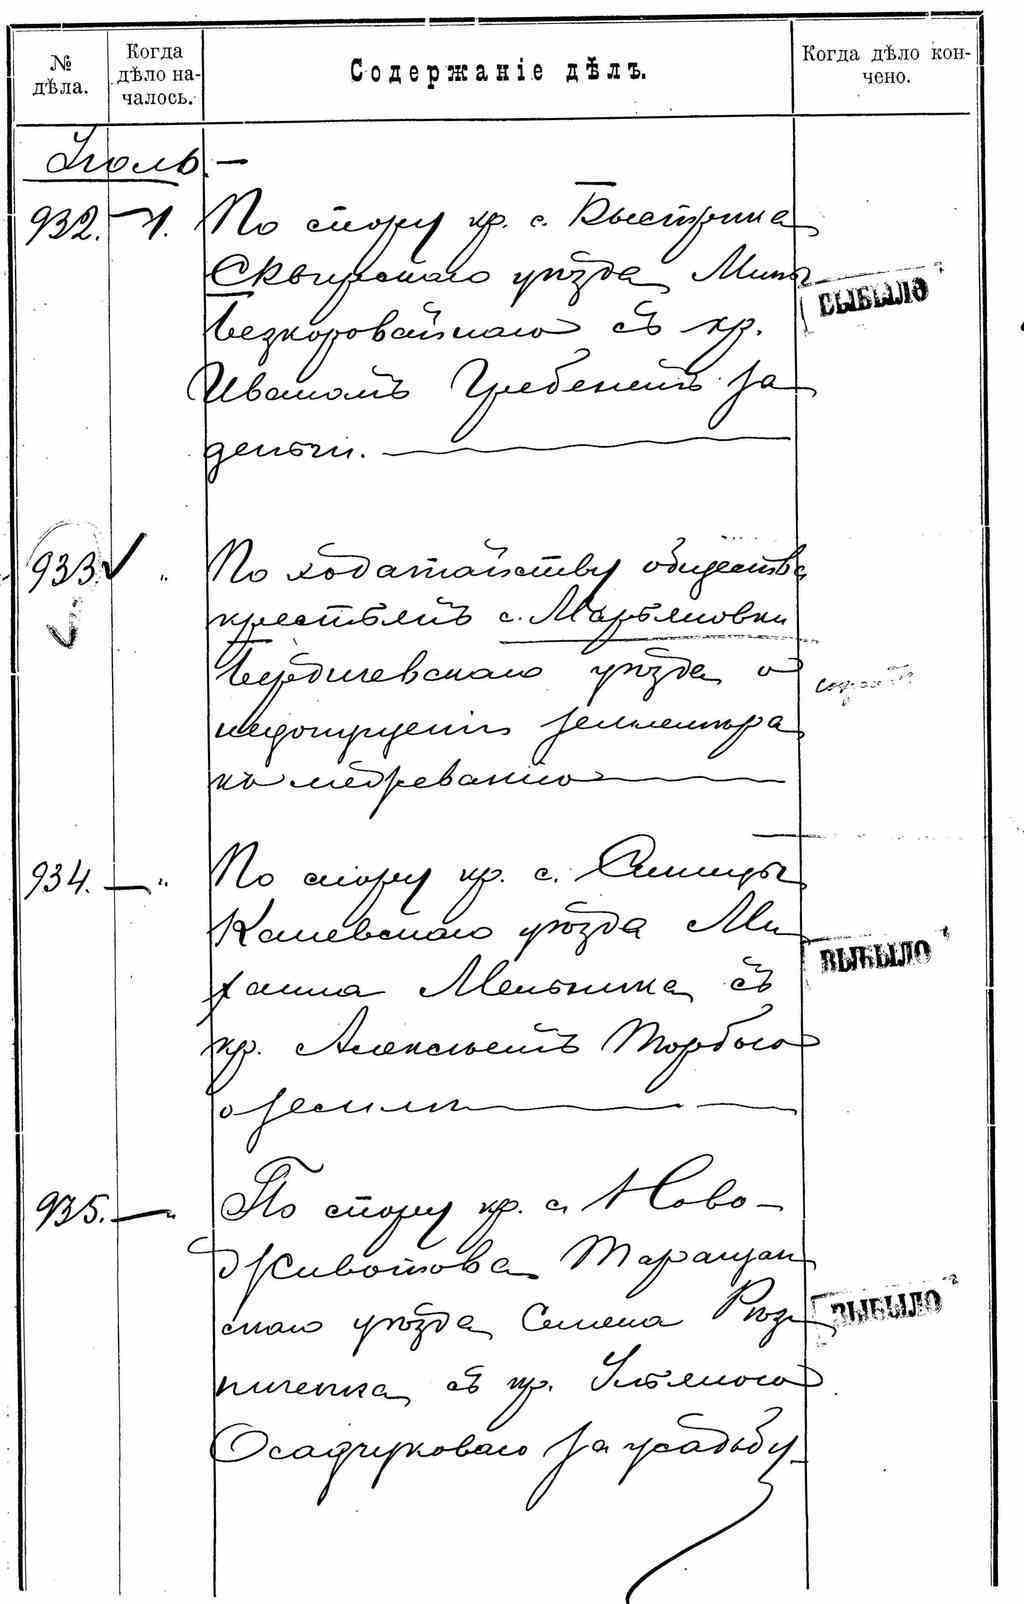 № дѣла.
Когда дѣло на-
чалось.
Содержаніе дѣлъ.
Когда дѣло кон-
чено.
Іюль.—
932. — 1. По спору кр. с. Быстрика
Сквирскаго уѣзда Мины
Безкоровайнаго съ кр.
Иваномъ Гребенемъ за
деньги.
ВЫБЫЛО
933 " По ходатайству общества
крестьянъ с. Марьяновки
Бердичевскаго уѣзда о
недопущеніи землемѣра
къ межеванію
934. — " По спору кр. с. Синицы
Каневскаго уѣзда Ми
хаила Мельника съ
кр. Алексѣемъ Торбою
о землѣ
ВЫБЫЛО
935. — " По спору кр. с. Ново-
Животова Таращан
скаго уѣзда Семена Рѣз
ниченка съ кр. Ульяною
Осадчуковою за усадьбу
ВЫБЫЛО